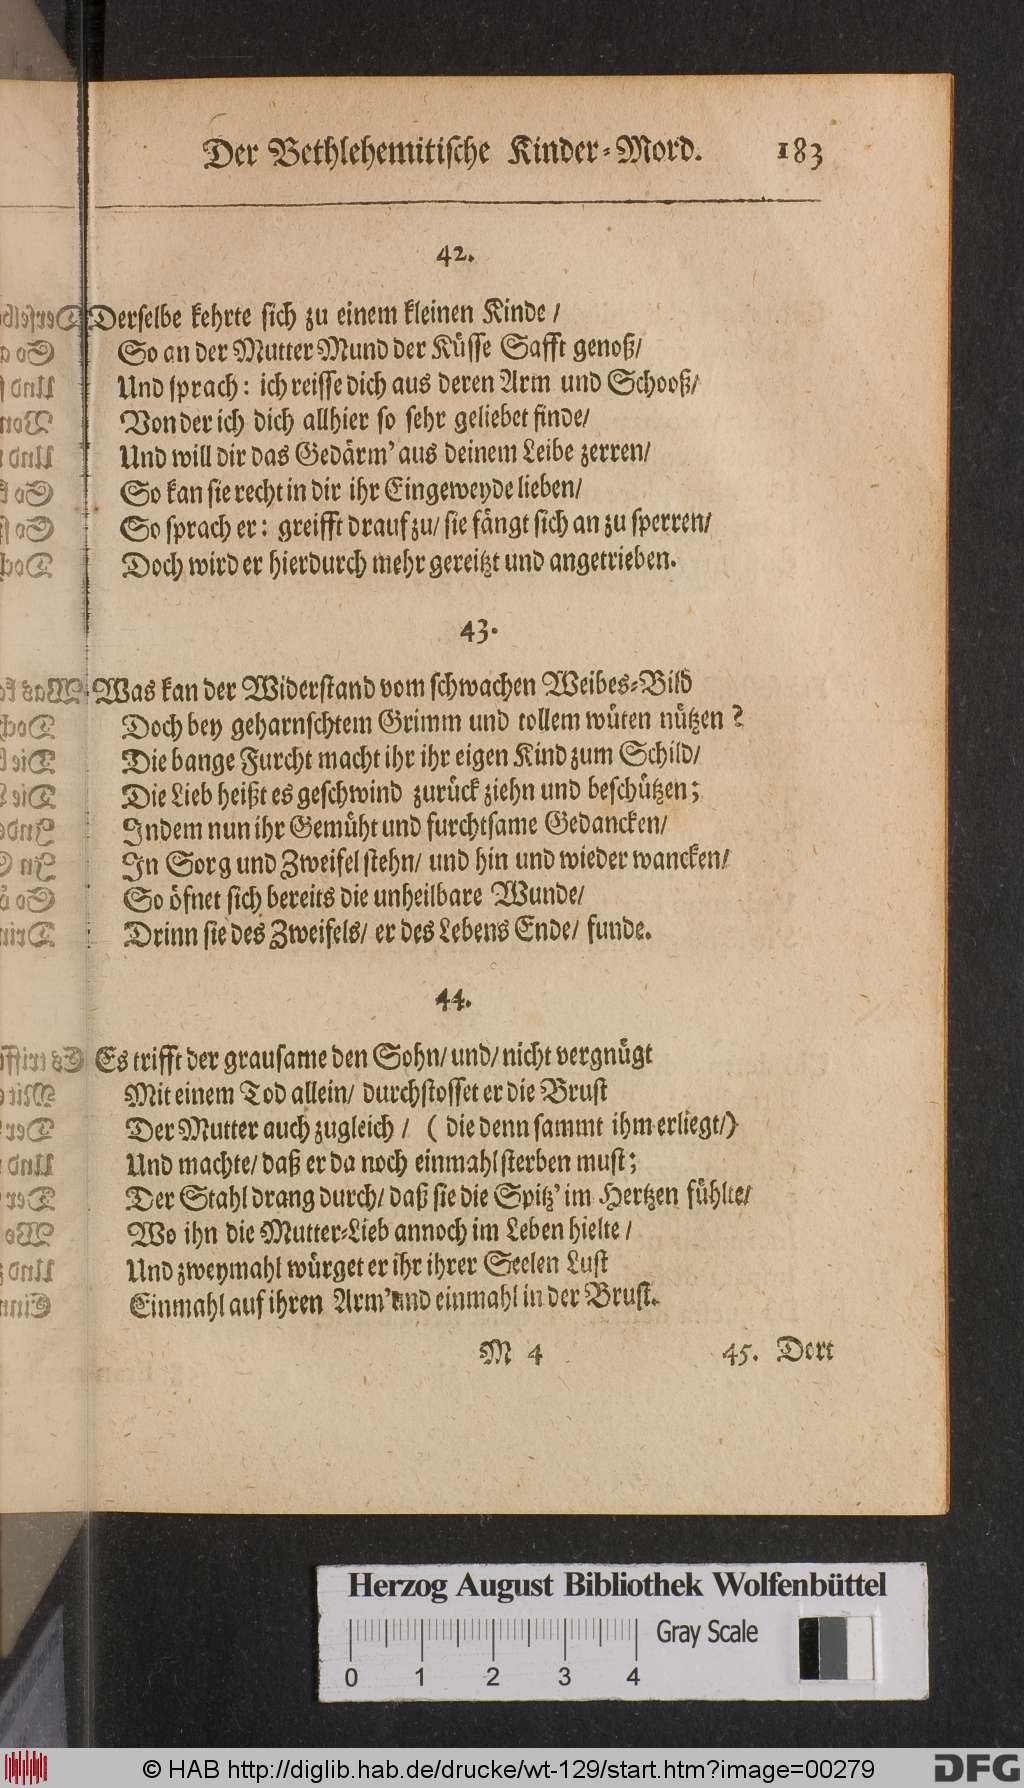 Der Bethlehemitische Kinder-Mord. 183
42.
Derselbe kehrte sich zu einem kleinen Kinde /
So an der Mutter Mund der Küsse Safft genoß/
Und sprach: ich reisse dich aus deren Arm und Schooß/
Von der ich dich allhier so sehr geliebet finde/
Und will dir das Gedärm' aus deinem Leibe zerren/
So kan sie recht in dir ihr Eingeweyde lieben/
So sprach er: greifft drauf zu/ sie fängt sich an zu sperren/
Doch wird er hierdurch mehr gereitzt und angetrieben.
43.
Was kan der Widerstand vom schwachen Weibes-Bild
Doch bey geharnschtem Grimm und tollem wüten nützen ?
Die bange Furcht macht ihr ihr eigen Kind zum Schild/
Die Lieb heißt es geschwind zurück ziehn und beschützen;
Indem nun ihr Gemüht und furchtsame Gedancken/
In Sorg und Zweifel stehn/ und hin und wieder wancken/
So öfnet sich bereits die unheilbare Wunde/
Drinn sie des Zweifels/ er des Lebens Ende/ funde.
44.
Es trifft der grausame den Sohn/ und/ nicht vergnügt
Mit einem Tod allein/ durchstosset er die Brust
Der Mutter auch zugleich / ( die denn sammt ihm erliegt/)
Und machte/ daß er da noch einmahl sterben must;
Der Stahl drang durch/ daß sie die Spitz' im Hertzen fühlte/
Wo ihn die Mutter-Lieb annoch im Leben hielte /
Und zweymahl würget er ihr ihrer Seelen Lust
Einmahl auf ihren Arm' und einmahl in der Brust.
M 4 45. Dort
Herzog August Bibliothek Wolfenbüttel
Gray Scale
0 1 2 3 4
© HAB http://diglib.hab.de/drucke/wt-129/start.htm?image=00279
DFG